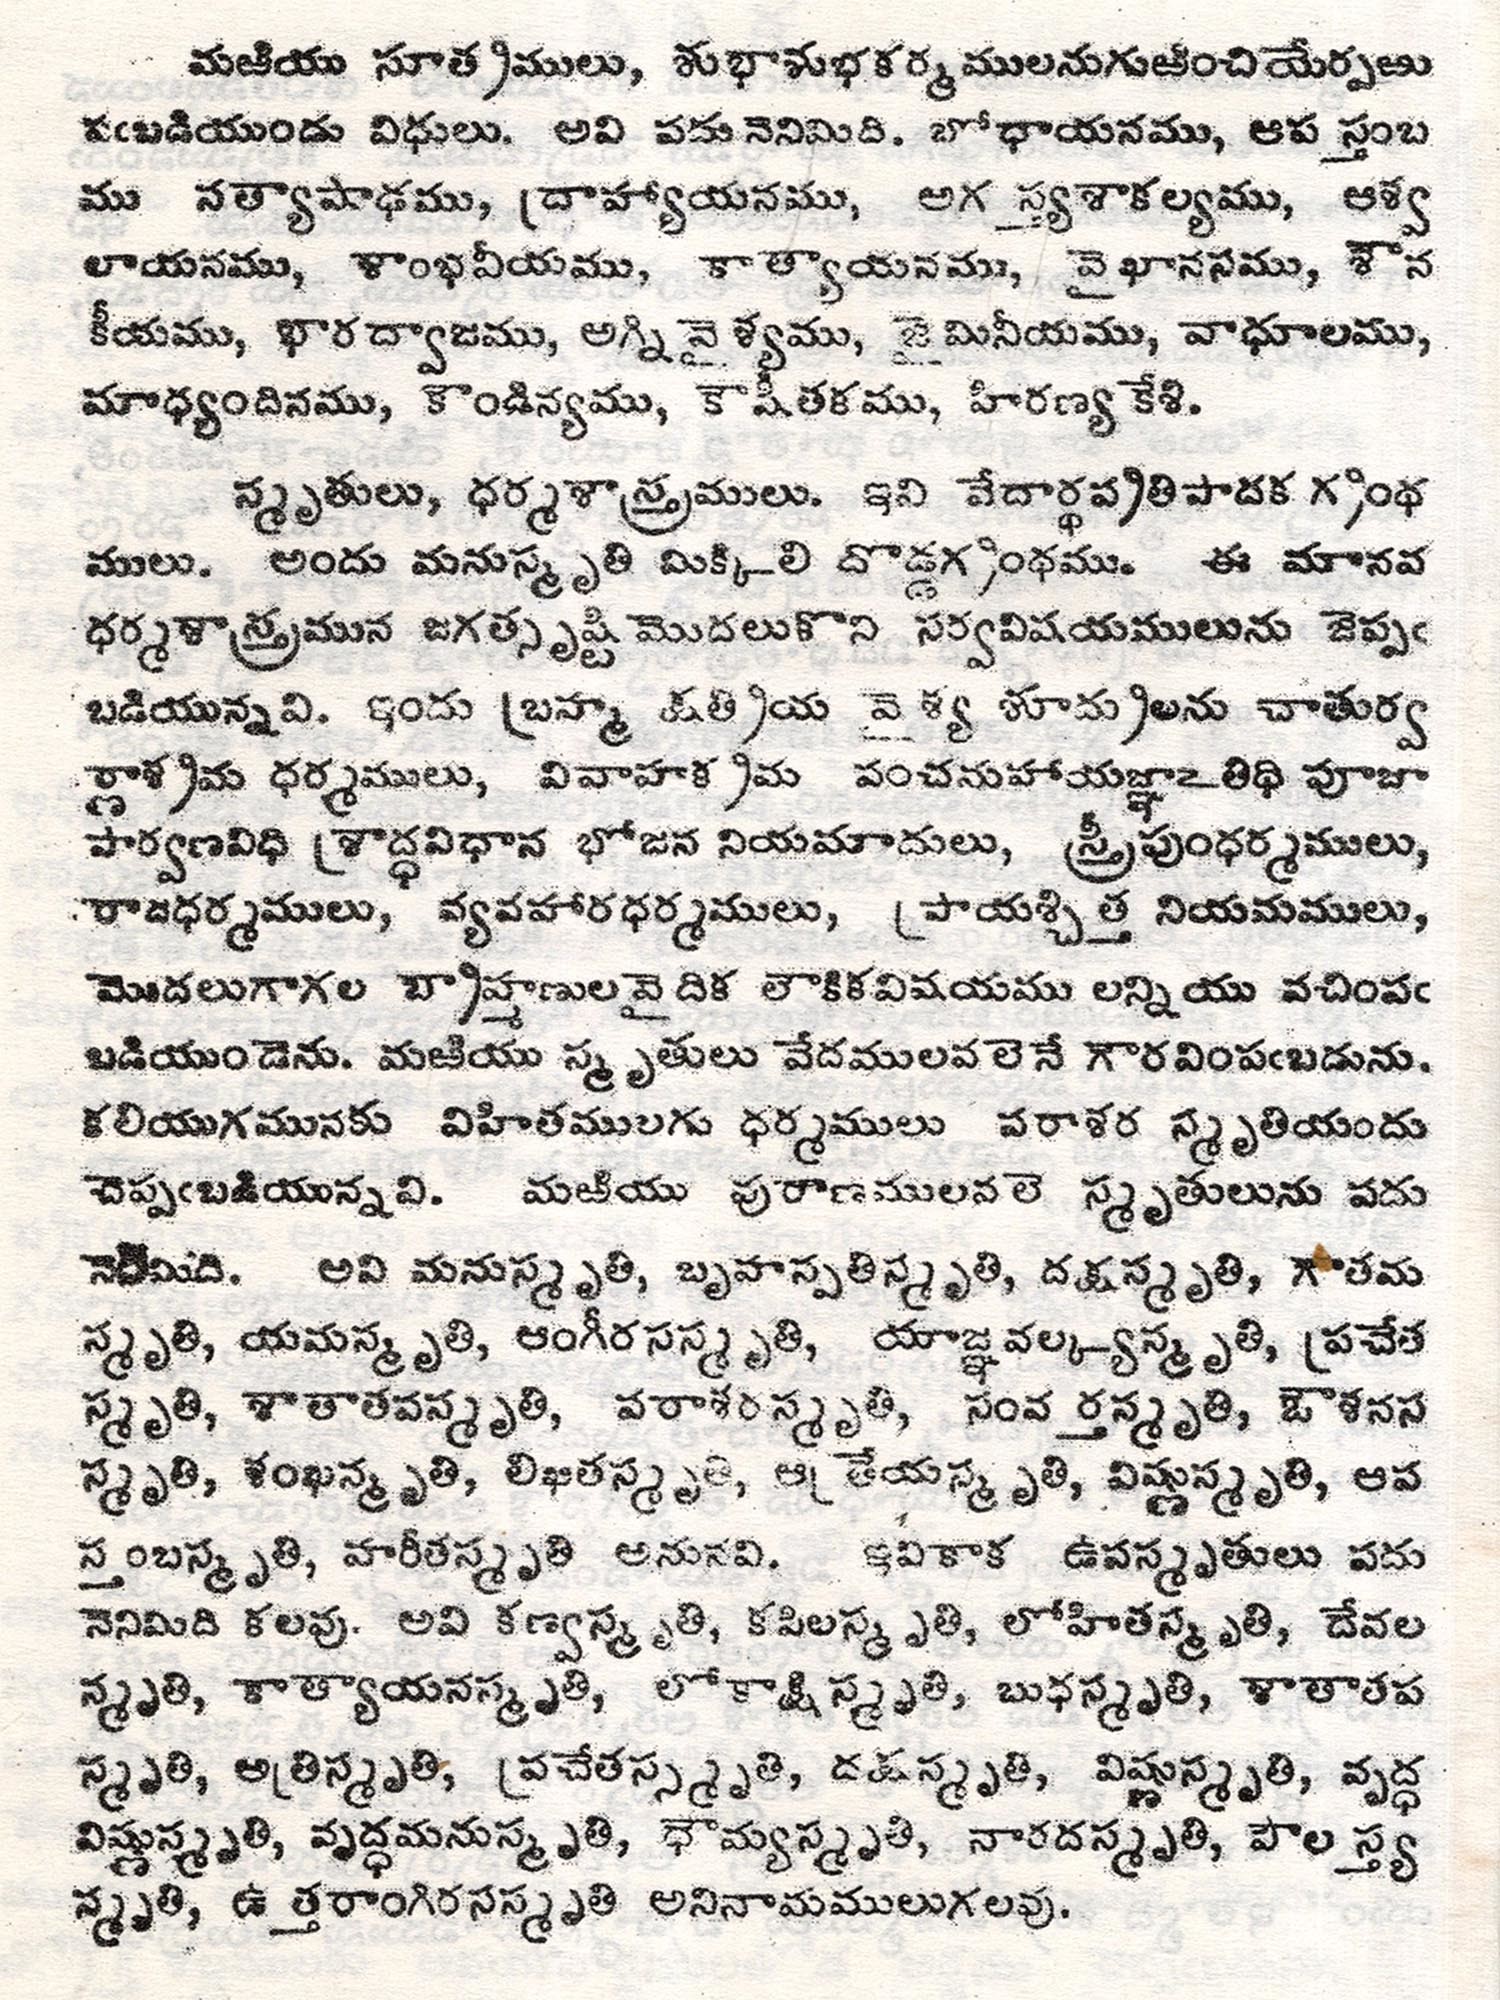 మఱియు సూత్రములు, శుభాశుభకర్మములనుగుఱించియేర్పఱు
పఁబడియుండు విధులు. అవి పదునెనిమిది. బోధాయనము, ఆపస్తంబ
ము సత్యాషాఢము, ద్రాహ్యాయనము, అగస్త్యశాకల్యము, ఆశ్వ
లాయనము, శాంభవీయము, కాత్యాయనము, వైఖానసము, శౌన
కీయము, భారద్వాజము, అగ్నివైశ్యము, జైమినీయము, వాధూలము,
మాధ్యందినము, కౌండిన్యము, కౌషీతకము, హిరణ్యకేశి.
స్మృతులు, ధర్మశాస్త్రములు. ఇవి వేదార్థప్రతిపాదక గ్రంథ
ములు. అందు మనుస్మృతి మిక్కిలి దొడ్డగ్రంథము. ఈ మానవ
ధర్మశాస్త్రమున జగత్సృష్టి మొదలుకొని సర్వవిషయములును జెప్పఁ
బడియున్నవి. ఇందు బ్రహ్మ క్షత్రియ వైశ్య శూద్రులను చాతుర్వ
ర్ణాశ్రమ ధర్మములు, వివాహక్రమ పంచమహాయజ్ఞాఽతిథి పూజా
పార్వణవిధి శ్రాద్ధవిధాన భోజన నియమాదులు, స్త్రీపుంధర్మములు,
రాజధర్మములు, వ్యవహారధర్మములు, ప్రాయశ్చిత్త నియమములు,
మొదలుగాగల బ్రాహ్మణులవైదిక లౌకికవిషయము లన్నియు వచింపఁ
బడియుండెను. మఱియు స్మృతులు వేదములవలెనే గౌరవింపఁబడును.
కలియుగమునకు విహితములగు ధర్మములు పరాశర స్మృతియందు
చెప్పఁబడియున్నవి. మఱియు పురాణములవలె స్మృతులును పదు
నెనిమిది. అవి మనుస్మృతి, బృహస్పతిస్మృతి, దక్షస్మృతి, గౌతమ
స్మృతి, యమస్మృతి, ఆంగీరసస్మృతి, యాజ్ఞవల్క్యస్మృతి, ప్రచేత
స్మృతి, శాతాతపస్మృతి, పరాశరస్మృతి, సంవర్తస్మృతి, ఔశనస
స్మృతి, శంఖస్మృతి, లిఖితస్మృతి, ఆత్రేయస్మృతి, విష్ణుస్మృతి, ఆప
స్తంబస్మృతి, హారీతస్మృతి అనునవి. ఇవికాక ఉపస్మృతులు పదు
నెనిమిది కలవు. అవి కణ్వస్మృతి, కపిలస్మృతి, లోహితస్మృతి, దేవల
స్మృతి, కాత్యాయనస్మృతి, లోకాక్షిస్మృతి, బుధస్మృతి, శాతాతప
స్మృతి, అత్రిస్మృతి, ప్రచేతస్స్మృతి, దక్షస్మృతి, విష్ణుస్మృతి, వృద్ధ
విష్ణుస్మృతి, వృద్ధమనుస్మృతి, ధౌమ్యస్మృతి, నారదస్మృతి, పౌలస్త్య
స్మృతి, ఉత్తరాంగిరసస్మృతి అనినామములుగలవు.